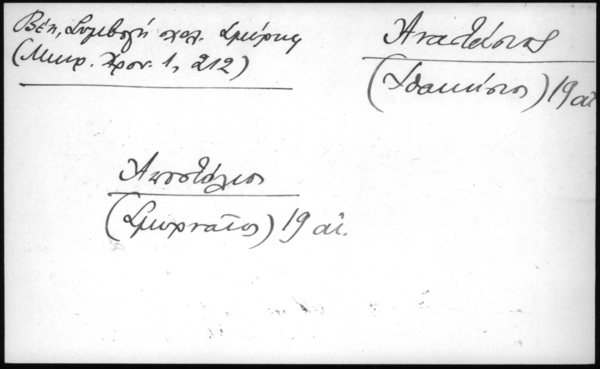 Βέη, Συμβολή σχολ. Σμύρνης
(Μικρ. Χρον. 1, 212)
Αναστάσιος
(Ιθακήσιος) 19 αἰ.
Αποστόλιος
(Σμυρναῖος) 19 αἰ.